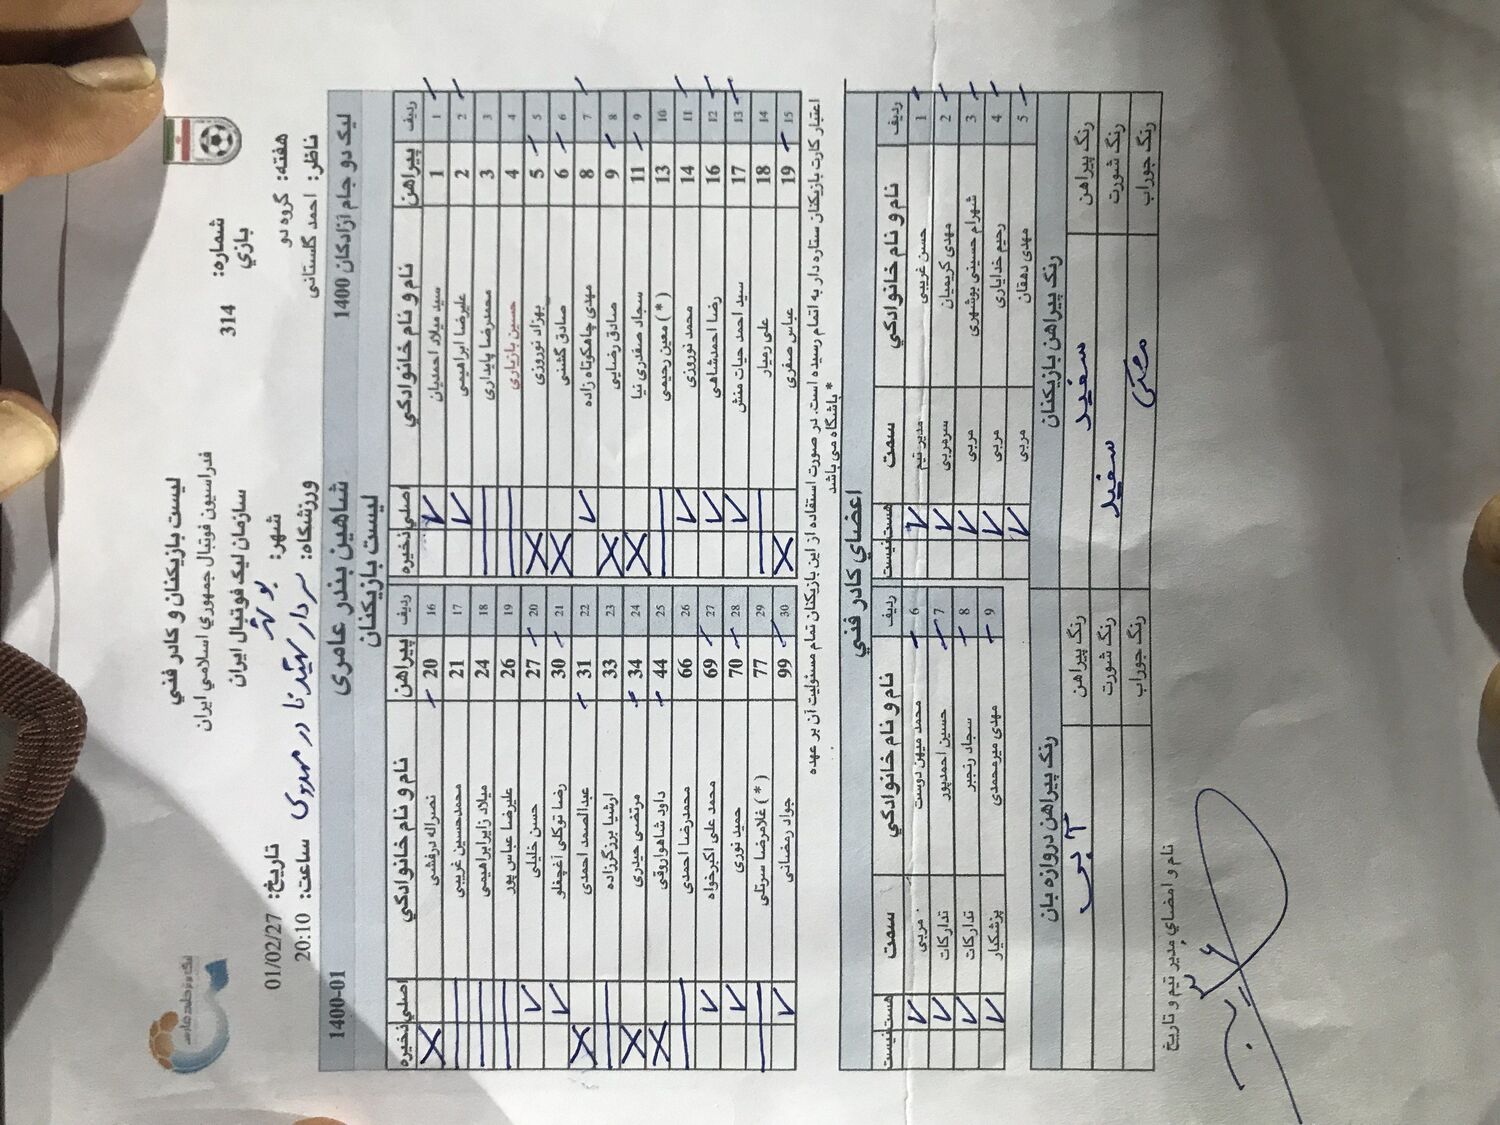 لیست بازیکنان و کادر فني
فدراسیون فوتبال جمهوري اسلامي ایران
سازمان لیگ فوتبال ایران
شماره: 314
بازي
هفته: گروه دو
شهر: بوشهر
تاریخ: 01/02/27
ناظر: احمد گلستانی
ورزشگاه: سردار شهید نادر مهدوی
ساعت: 20:10
لیگ دو جام آزادگان 1400
شاهین بندر عامری
1400-01
لیست بازیکنان
ردیف پیراهن نام و نام خانوادگي اصلي ذخیره
1 1 سید میلاد احمدیان
2 2 علیرضا ابراهیمی
3 3 محمدرضا پایداری
4 4 حسین بازیاری
5 5 بهزاد نوروزی
6 6 صادق گشنی
7 8 مهدی چاهکوتاه زاده
8 9 صادق رضایی
9 11 سجاد صفدری نیا
10 13 ( * ) معین رحیمی
11 14 محمد نوروزی
12 16 رضا احمدشاهی
13 17 سید احمد حیات منش
14 18 علی رمیار
15 19 عباس صفری
ردیف پیراهن نام و نام خانوادگي اصلي ذخیره
16 20 نصراله درفشی
17 21 محمدحسین غریبی
18 24 میلاد زایرابراهیمی
19 26 علیرضا عباس پور
20 27 حسن خلیلی
21 30 رضا توکلی آغچغلو
22 31 عبدالصمد احمدی
23 33 ارشیا برزگرزاده
24 34 مرتضی حیدری
25 44 داود شاهواروقی
26 66 محمدرضا احمدی
27 69 محمد علی اکبرخواه
28 70 حمید نوری
29 77 ( * ) غلامرضا سرتلی
30 99 جواد رمضانی
اعتبار کارت بازیکنان ستاره دار به اتمام رسیده است. در صورت استفاده از این بازیکنان تمام مسئولیت آن بر عهده
* باشگاه می باشد
اعضاي کادر فني
ردیف نام و نام خانوادگي سمت هست نیست
1 حسن غریبی مدیر تیم
2 مهدی کریمیان سرمربی
3 شهرام حسینی بوشهری مربی
4 رحیم خدایاری مربی
5 مهدی دهقان مربی
ردیف نام و نام خانوادگي سمت هست نیست
6 محمد میهن دوست مربی
7 حسین احمدپور تدارکات
8 سجاد رنجبر تدارکات
9 مهدی میرمحمدی پزشکیار
رنگ پیراهن بازیکنان
رنگ پیراهن سفید
رنگ شورت سفید
رنگ جوراب مشکی
رنگ پیراهن دروازه بان
رنگ پیراهن آبی
رنگ شورت
رنگ جوراب
نام و امضاي مدیر تیم و تاریخ